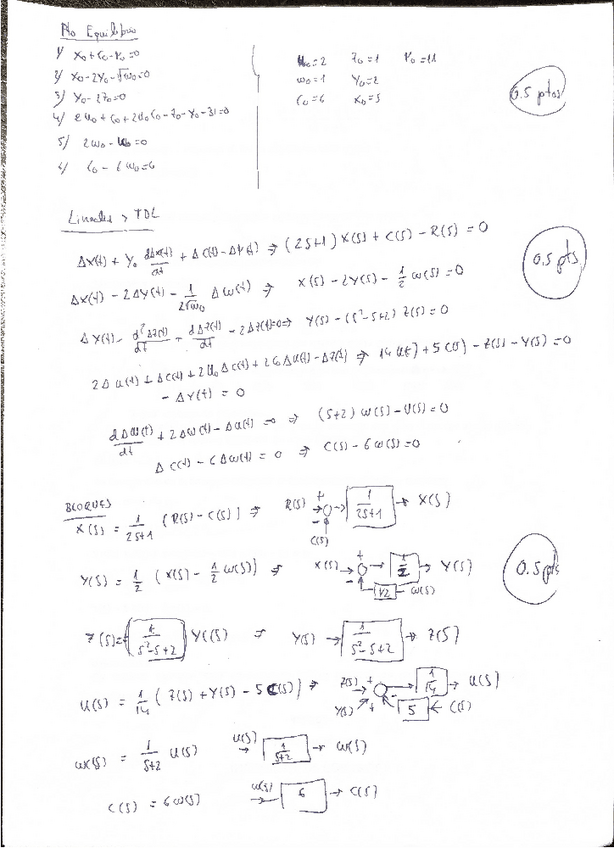 No Equilibrio
1) x₀ + c₀ - r₀ = 0
2) x₀ - 2y₀ - √w₀ = 0
3) y₀ - 2z₀ = 0
4) 2u₀ + c₀ + 2u₀c₀ - z₀ - y₀ - 31 = 0
5) 2w₀ - u₀ = 0
6) c₀ - 6w₀ = 0
u₀=2 z₀=1 r₀=11
w₀=1 y₀=2
c₀=6 x₀=5
0.5 ptos
Lineales > TDL
Δx(t) + y₀ dΔx(t)/dt + Δc(t) - Δr(t) ⇒ (2s+1) X(s) + C(s) - R(s) = 0
0.5 pts
Δx(t) - 2Δy(t) - 1/(2√w₀) Δw(t) ⇒ X(s) - 2Y(s) - 1/2 W(s) = 0
Δy(t) - d²Δz(t)/dt - dΔz(t)/dt - 2Δz(t)=0 ⇒ Y(s) - (s²-s+2) Z(s) = 0
2Δu(t) + Δc(t) + 2u₀Δc(t) + 2c₀Δu(t) - Δz(t) ⇒ 14 U(s) + 5C(s) - Z(s) - Y(s) = 0
- Δy(t) = 0
dΔw(t)/dt + 2Δw(t) - Δu(t) = 0 ⇒ (s+2) W(s) - U(s) = 0
Δc(t) - 6Δw(t) = 0 ⇒ C(s) - 6W(s) = 0
BLOQUES
X(s) = 1/(2s+1) (R(s) - C(s)) ⇒ R(s) + - 1/(2s+1) → X(s)
C(s)
Y(s) = 1/2 (X(s) - 1/2 W(s)) ⇒ X(s) + - 1/2 → Y(s)
1/2 ← W(s)
0.5 pts
Z(s) = (1/(s²-s+2)) Y(s) ⇒ Y(s) → 1/(s²-s+2) → Z(s)
U(s) = 1/14 (Z(s) + Y(s) - 5C(s)) ⇒ Z(s) + - 1/14 → U(s)
Y(s) + 5 ← C(s)
W(s) = 1/(s+2) U(s) U(s) → 1/(s+2) → W(s)
C(s) = 6W(s) W(s) → 6 → C(s)